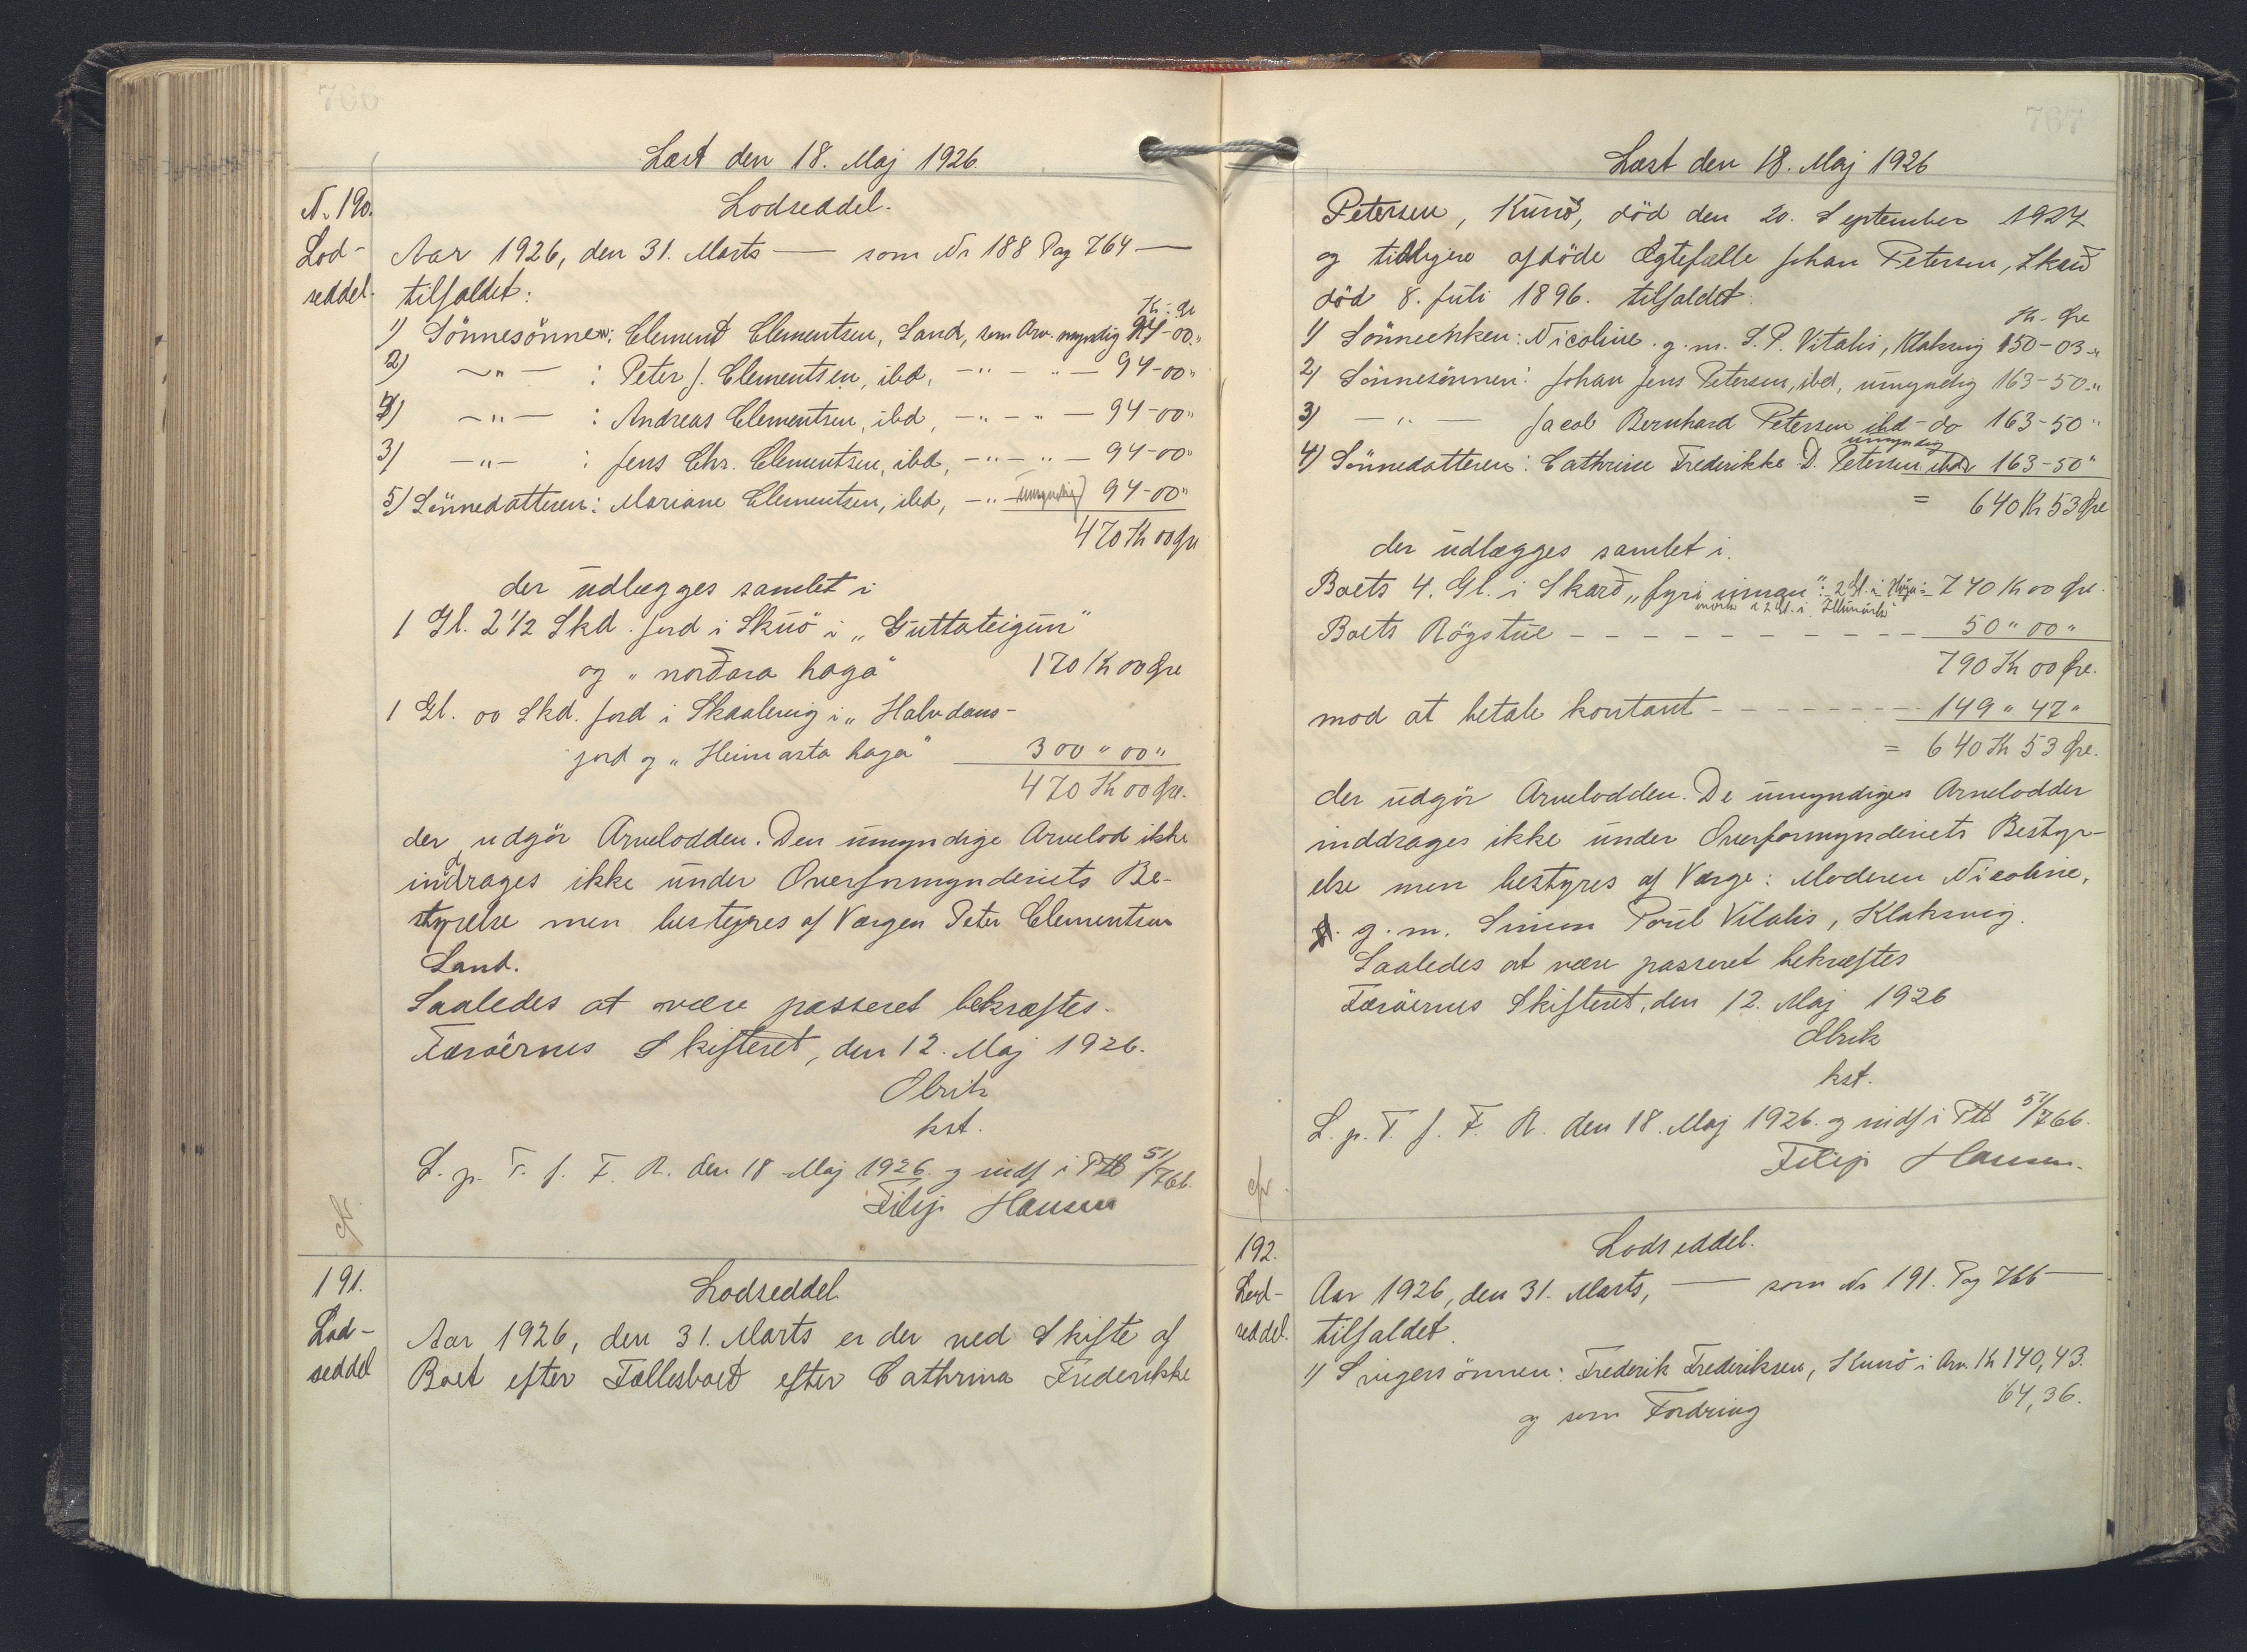 766
Læst den 18. Maj 1926.
N. 190.
Lod-
seddel.
Lodseddel.
Aar 1926, den 31. Marts — som Nr 188 Pag 764 —
tilfaldet:
Kr. Øre
1) Sönnesönnen: Clement Clementsen, Sand, som Arv. myndig 94-00"
2) — " — : Peter J. Clementsen, ibd, — " — " — 94-00"
4) — " — : Andreas Clementsen, ibd, — " — " — 94-00"
3) — " — : Jens Chr. Clementsen, ibd, — " — " — 94-00"
5) Sönnedatteren: Mariane Clementsen, ibd, — " — (umyndig) 94-00"
470 Kr 00 Øre
der udlægges samlet i
1 Gl. 2 1/2 Skd. Jord i Skuö i "Guttateigun"
og "norðara haga" 170 Kr 00 Øre
1 Gl. 00 Skd. Jord i Skaalevig i "Halvdans-
jord og "Heimasta haga" 300 " 00 "
470 Kr 00 Øre.
der udgör Arvelodden. Den umyndige Arvelod ikke
inddrages ikke under Overformynderiets Be-
styrelse men bestyres af Værgen Peter Clementsen
Sand.
Saaledes at være passeret bekræftes.
Færöernes Skifteret, den 12. Maj 1926.
Olrik
kst.
L. p. T. f. F. R. den 18 Maj 1926. og indf i Ptb 51/766.
Filip Hansen
cfr.
191.
Lod-
seddel
Lodseddel
Aar 1926, den 31. Marts er der ved Skifte af
Boet efter Fællesboet efter Cathrina Frederikke
767
Læst den 18. Maj 1926
Petersen, Kunö, död den 20. September 1924
og tidligere afdöde Ægtefælle Johan Petersen, Skarð
död 8. Juli 1896. tilfaldet:
Kr. Øre
1) Sönneenken: Nicoline g. m. S. P. Vitalis, Klaksvig 150-03 "
2) Sönnesönnen: Johan Jens Petersen, ibd, umyndig 163-50 "
3) — " — Jacob Bernhard Petersen ibd - do 163-50 "
umyndig
4) Sönnedatteren: Cathrine Frederikke D. Petersen ibd 163-50 "
= 640 Kr 53 Øre
der udlægges samlet i.
Boets 4. Gl. i Skarð "fyri innan": 2 Gl. i Höga- 740 Kr 00 Øre.
mörk & 2 Gl. i Illumörk
Boets Rögstue - - - - - - - - - - 50 " 00 "
790 Kr 00 Øre.
mod at betale kontant - - - - - - - - 149 " 47 "
= 640 Kr 53 Øre.
der udgör Arvelodden. De umyndiges Arvelodder
inddrages ikke under Overformynderiets Bestyr-
else men bestyres af Værge: Moderen Nicoline,
g. m. Simon Poul Vitalis, Klaksvig.
Saaledes at være passeret bekræftes
Færöernes Skifteret, den 12. Maj 1926
Olrik
kst.
L. p. T. f. F. R. den 18. Maj 1926. og indf i Ptb 51/766.
Filip Hansen.
cfr.
192.
Lod-
seddel.
Lodseddel.
Aar 1926, den 31. Marts, — som Nr 191. Pag 766 —
tilfaldet.
1) Svigersönnen: Frederik Frederiksen, Kunö i Arv. Kr 140,43.
og som Fordring 64,36.